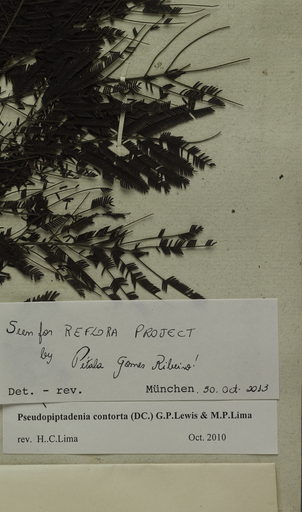 Seen for REFLORA PROJECT
by Pétala Gomes Ribeiro!
Det. - rev. München, 30. Oct 2013
Pseudopiptadenia contorta (DC.) G.P.Lewis & M.P.Lima
rev. H..C.Lima Oct. 2010